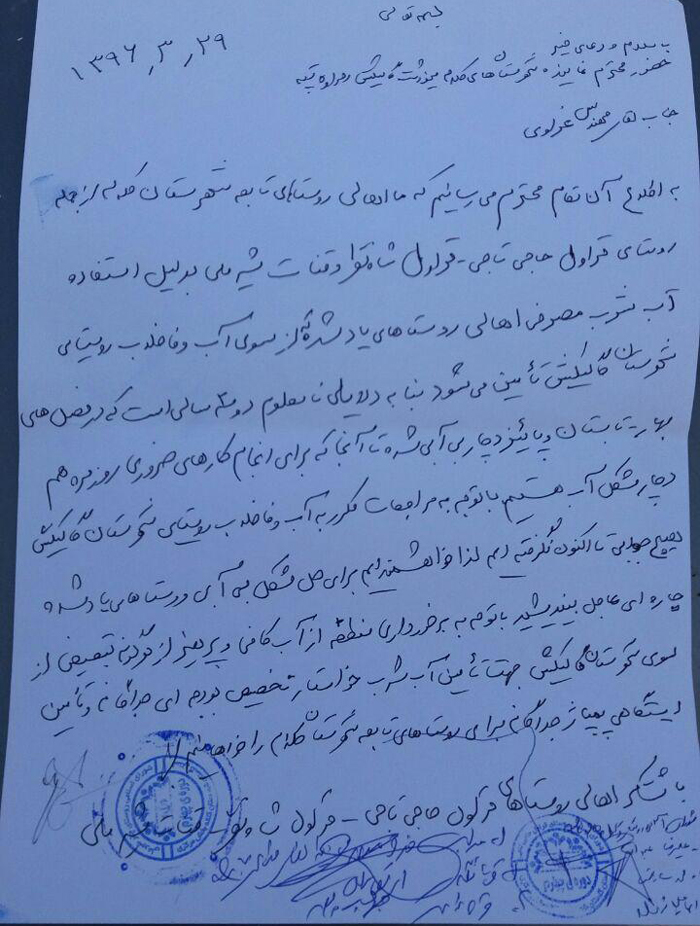 بسمه تعالی
۱۳۹۶٫۳٫۲۹
با سلام و دعای خیر
حضور محترم نماینده شهرستان‌های کلاله مینودشت گالیکش و مراوه تپه
جناب آقای مهندس غراوی
به اطلاع آن مقام محترم می رسانیم که ما اهالی روستاهای تابعه شهرستان کلاله از جمله
روستای قراول حاجی تاجی - قراول شاه تقر و قنات شیر ملی بدلیل استفاده
آب شرب مصرفی اهالی روستاهای یاد شده که از سوی آب و فاضلاب روستای
شهرستان گالیکش تأمین می شود بنا به دلایلی نامعلوم دو سه سالی است که در فصل های
بهار تابستان و پائیز دچار بی آبی شده تا آنجا که برای انجام کارهای ضروری روزمره هم
دچار مشکل آب هستیم با توجه به مراجعات مکرر به آب و فاضلاب روستای شهرستان گالیکش
هیچ جوابی تا کنون نگرفته ایم لذا خواهشمندیم برای حل مشکل بی آبی روستاهای یاد شده
چاره ای عاجل بیندیشید با توجه به برخورداری منطقه از آب کافی و پرهیز از هرگونه تبعیض از
سوی شهرستان گالیکش جهت تأمین آب شرب خواستار تخصیص بودجه ای جداگانه و تأمین
ایستگاهی پمپاژ جداگانه برای روستاهای تابعه شهرستان کلاله را خواهانیم
با تشکر اهالی روستاهای قراول حاجی تاجی - قراول شاه تقر - قنات شیر ملی